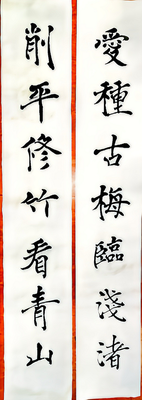 愛種古梅臨淺渚
削平修竹看青山